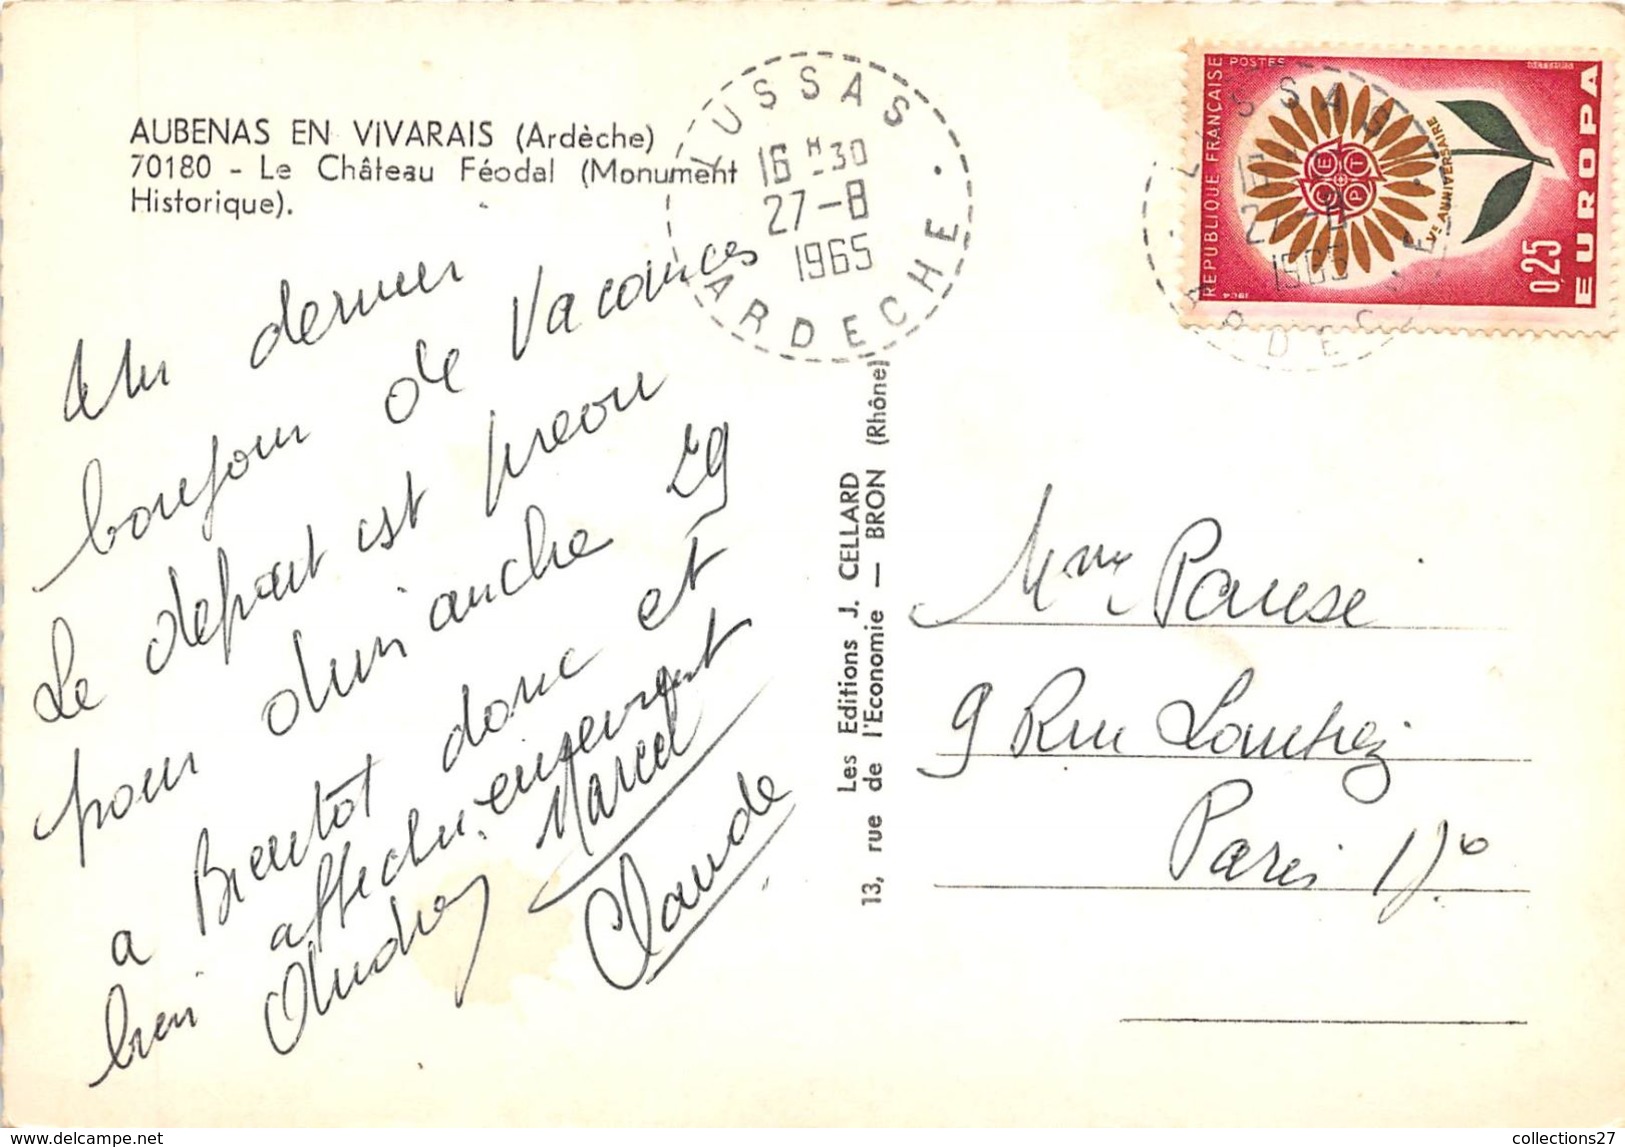 AUBENAS EN VIVARAIS (Ardèche)
70180 - Le Château Féodal (Monument
Historique).
Un dernier
bonjour de Vacances
Le départ est prévu
pour dimanche 29
a Bientôt donc et
bien affectueusement
Marcel
Andrey
Claude
LUSSAS
16 H 30
27-8
1965
ARDECHE
Les Editions J. CELLARD
13, rue de l'Economie — BRON (Rhône)
REPUBLIQUE FRANÇAISE
POSTES
CEPT
Ve ANNIVERSAIRE
0,25
EUROPA
1964
LUSSAS
1965
ARDECHE
Mme Pause
9 Rue
Paris
collections27
www.delcampe.net